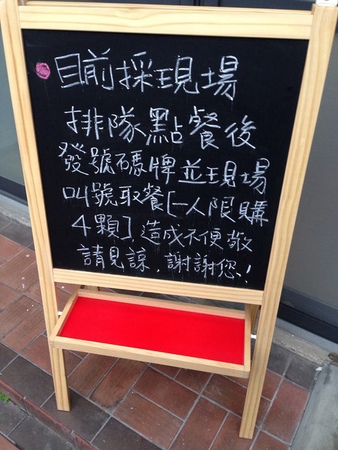 目前採現場
排隊點餐後
發號碼牌並現場
叫號取餐[一人限購
4顆],造成不便敬
請見諒,謝謝您!